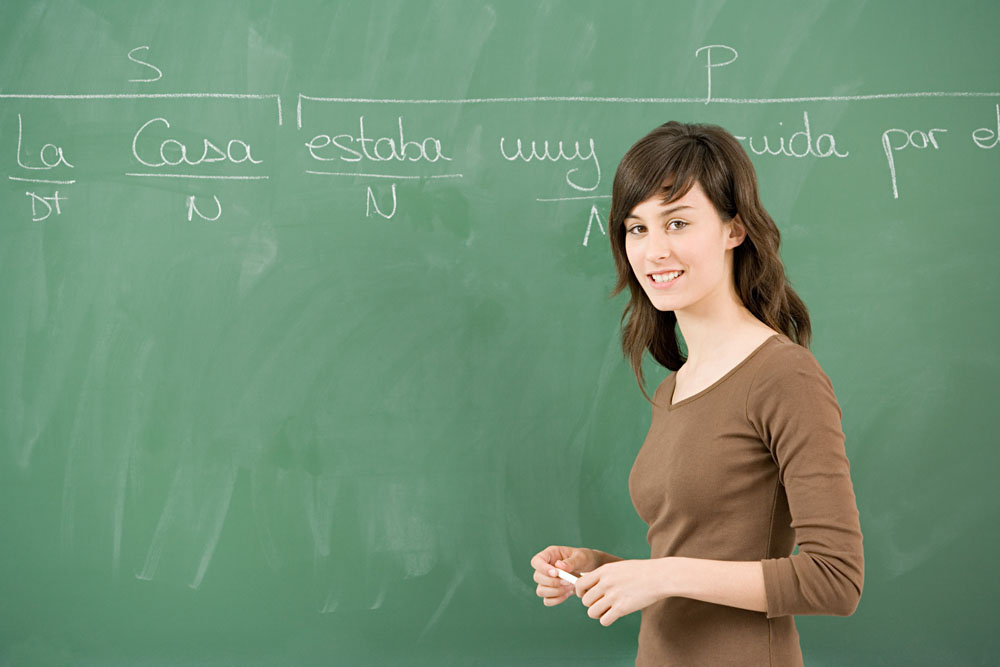 S P
La Casa estaba muy uida por el
Dt N N Λ